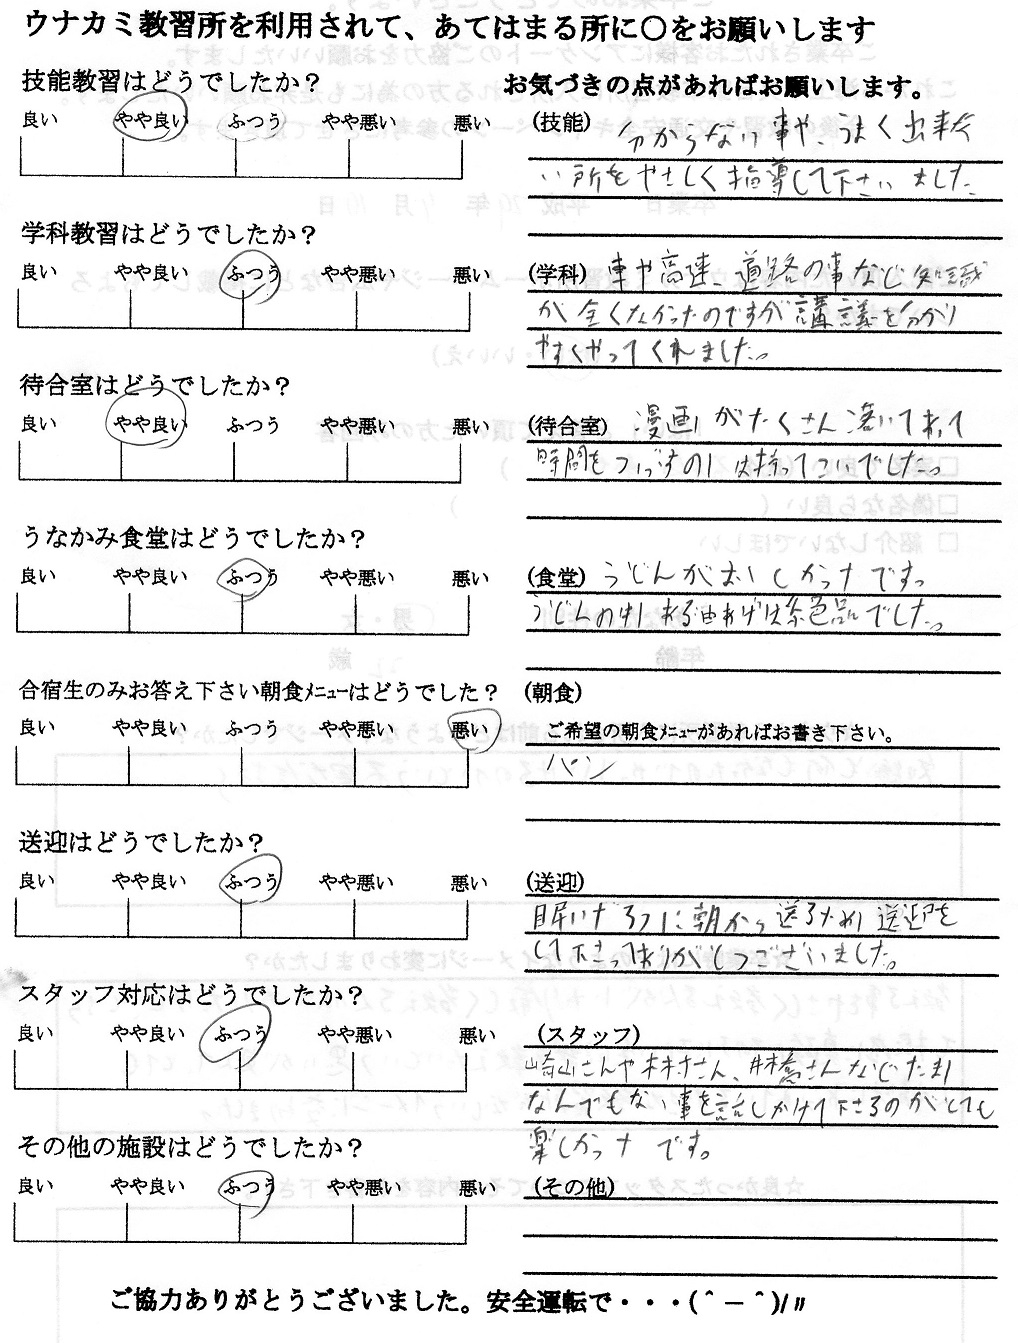 ウナカミ教習所を利用されて、あてはまる所に〇をお願いします
技能教習はどうでしたか？
お気づきの点があればお願いします。
良い やや良い ふつう やや悪い 悪い
(技能) 分からない事や、うまく出来な
い所をやさしく指導して下さいました
学科教習はどうでしたか？
良い やや良い ふつう やや悪い 悪い
(学科) 車や高速、道路の事など知識
が全くなかったのですが講議を分かり
やすくやってくれました。
待合室はどうでしたか？
良い やや良い ふつう やや悪い 悪い
(待合室) 漫画がたくさん置いてあって
時間をつぶすのには持ってこいでした。
うなかみ食堂はどうでしたか？
良い やや良い ふつう やや悪い 悪い
(食堂) うどんがおいしかったです。
うどんの中に入れる油あげは絶品でした。
合宿生のみお答え下さい朝食ﾒﾆｭｰはどうでした？
(朝食)
良い やや良い ふつう やや悪い 悪い
ご希望の朝食ﾒﾆｭｰがあればお書き下さい。
パン
送迎はどうでしたか？
良い やや良い ふつう やや悪い 悪い
(送迎)
眠いだろうに朝から送るため送迎を
して下さってありがとうございました。
スタッフ対応はどうでしたか？
良い やや良い ふつう やや悪い 悪い
(スタッフ)
さんや さん、 さんなどたまに
なんでもない事を話しかけて下さるのがとても
楽しかったです。
その他の施設はどうでしたか？
良い やや良い ふつう やや悪い 悪い
(その他)
ご協力ありがとうございました。安全運転で・・・(＾－＾)/〃